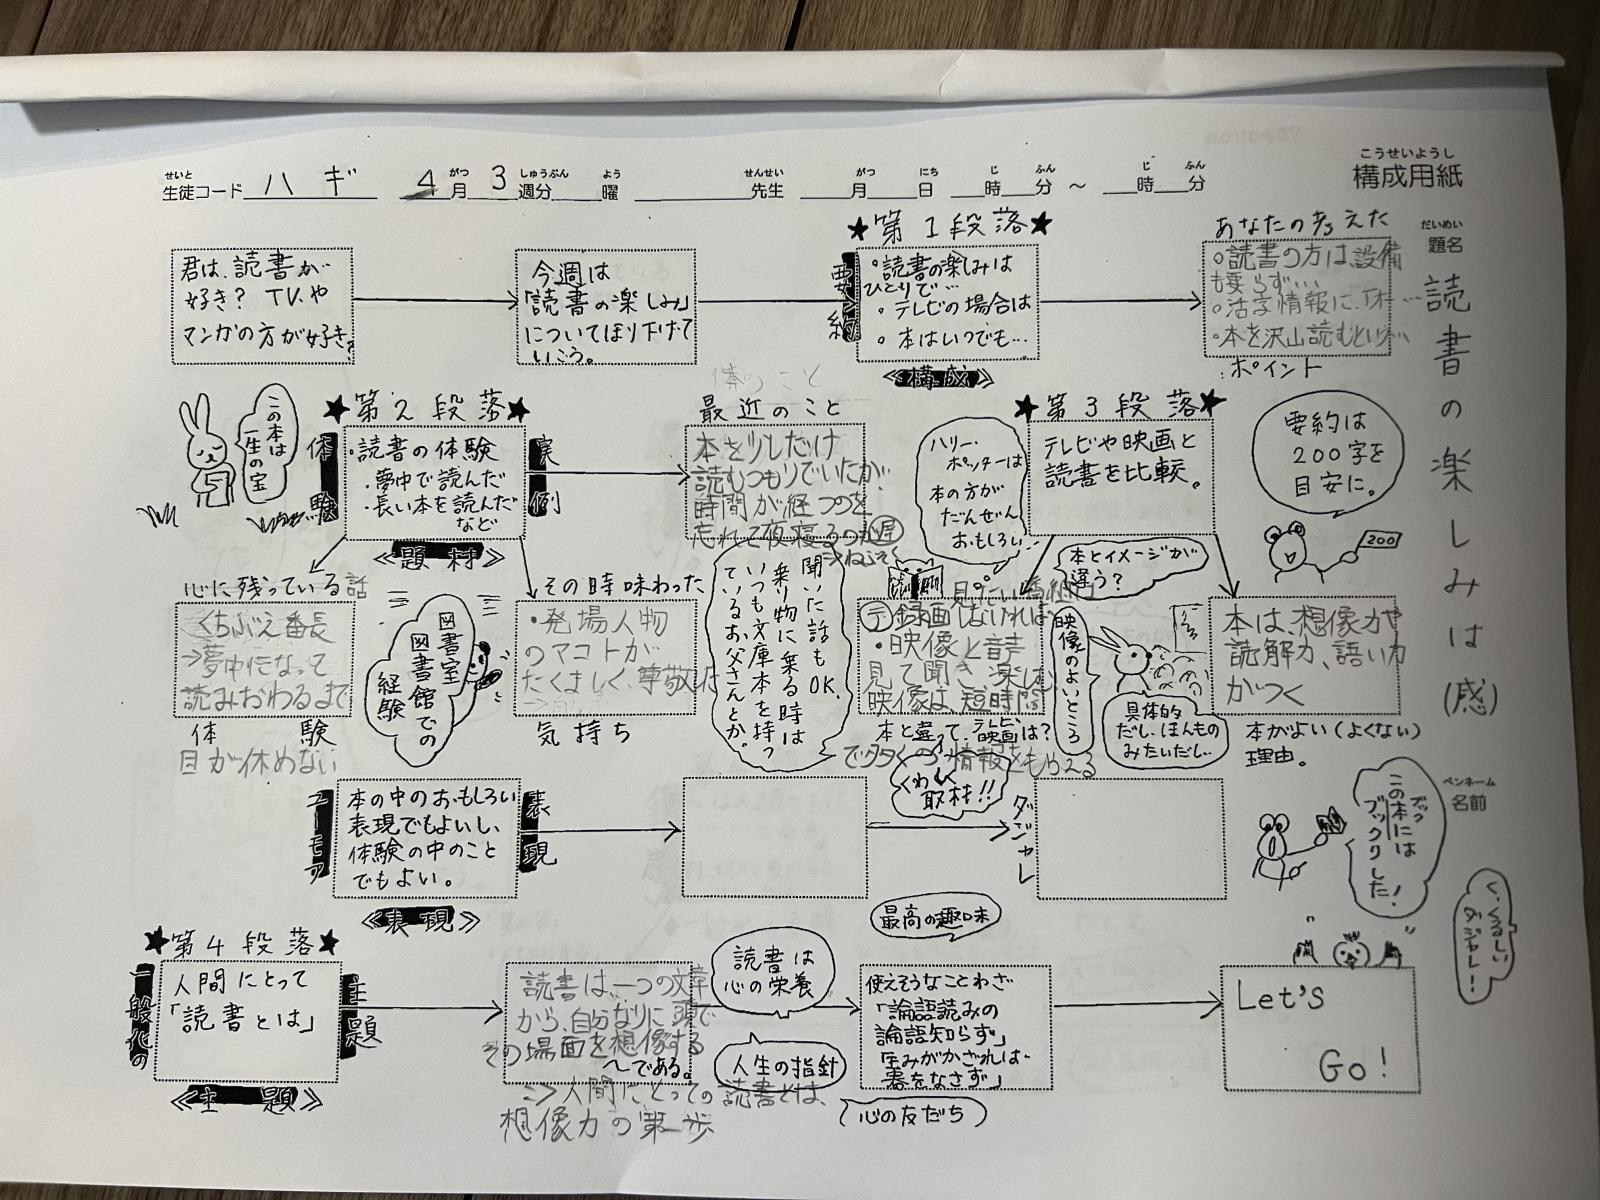 こうせいようし
構成用紙
せいと
生徒コード ハギ 4月 3週分 曜 先生 月 日 時 分 ～ 時 分
がつ しゅうぶん よう せんせい がつ にち じ ふん じ ふん
だいめい
題名
読書の楽しみは(感)
君は、読書が
好き? TVや
マンガの方が好き?
今週は
「読書の楽しみ」
についてほり下げて
いこう。
★第1段落★
要約
・読書の楽しみは
ひとりで…
・テレビの場合は
・本はいつでも…
《構成》
あなたの考えた
・読書の方は、設備
も要らず…
・活字情報に、
・本を沢山読むと
ポイント
要約は
200字を
目安に。
200
この本は
一生の宝
★第2段落★
体験
・読書の体験
・夢中で読んだ
・長い本を読んだ
など
《題材》
実例
最近のこと
本を少しだけ
読むつもりでいたが、
時間が経つのを
忘れて夜寝るのが遅
→ねぶそく
ハリー・
ポッターは
本の方が
だんぜん
おもしろい
★第3段落★
テレビや映画と
読書を比較。
本とイメージが
違う?
心に残っている話
くちぶえ番長
→夢中になって
読みおわるまで
体験
目が休めない
図書室
図書館での
経験
その時味わった
・発場人物
のマコトが
たくましく、尊敬
気持ち
聞いた話もOK.
乗り物に乗る時は
いつも文庫本を持っ
ているお父さんとか。
見たい番組
テ 録画しないれば
・映像と音声
見て聞き、楽しむ
映像は、短時間
本と違って、テレビ、映画は?
で多くの情報をもらえる
くわしく
取材!!
映像のよいところ
具体的
だし、ほんもの
みたいだし
本は、想像力や
読解力、語い力
がつく
本がよい(よくない)
理由。
ユーモア
本の中のおもしろい
表現でもよいし、
体験の中のこと
でもよい。
《表現》
表現
ダジャレ
ペンネーム
名前
ブック
この本には
ブックリした!
く、くるしい
ダジャレー!
★第4段落★
一般化の
人間にとって
「読書とは」
《主題》
主題
読書は、一つの文章
から、自分なりに頭で
その場面を想像する
～である。
⇒人間にとっての読書とは、
想像力の第一歩
読書は
心の栄養
最高の趣味
人生の指針
心の友だち
使えそうなことわざ
「論語読みの
論語知らず」
「玉みがかざれば
器をなさず」
Let's
Go!